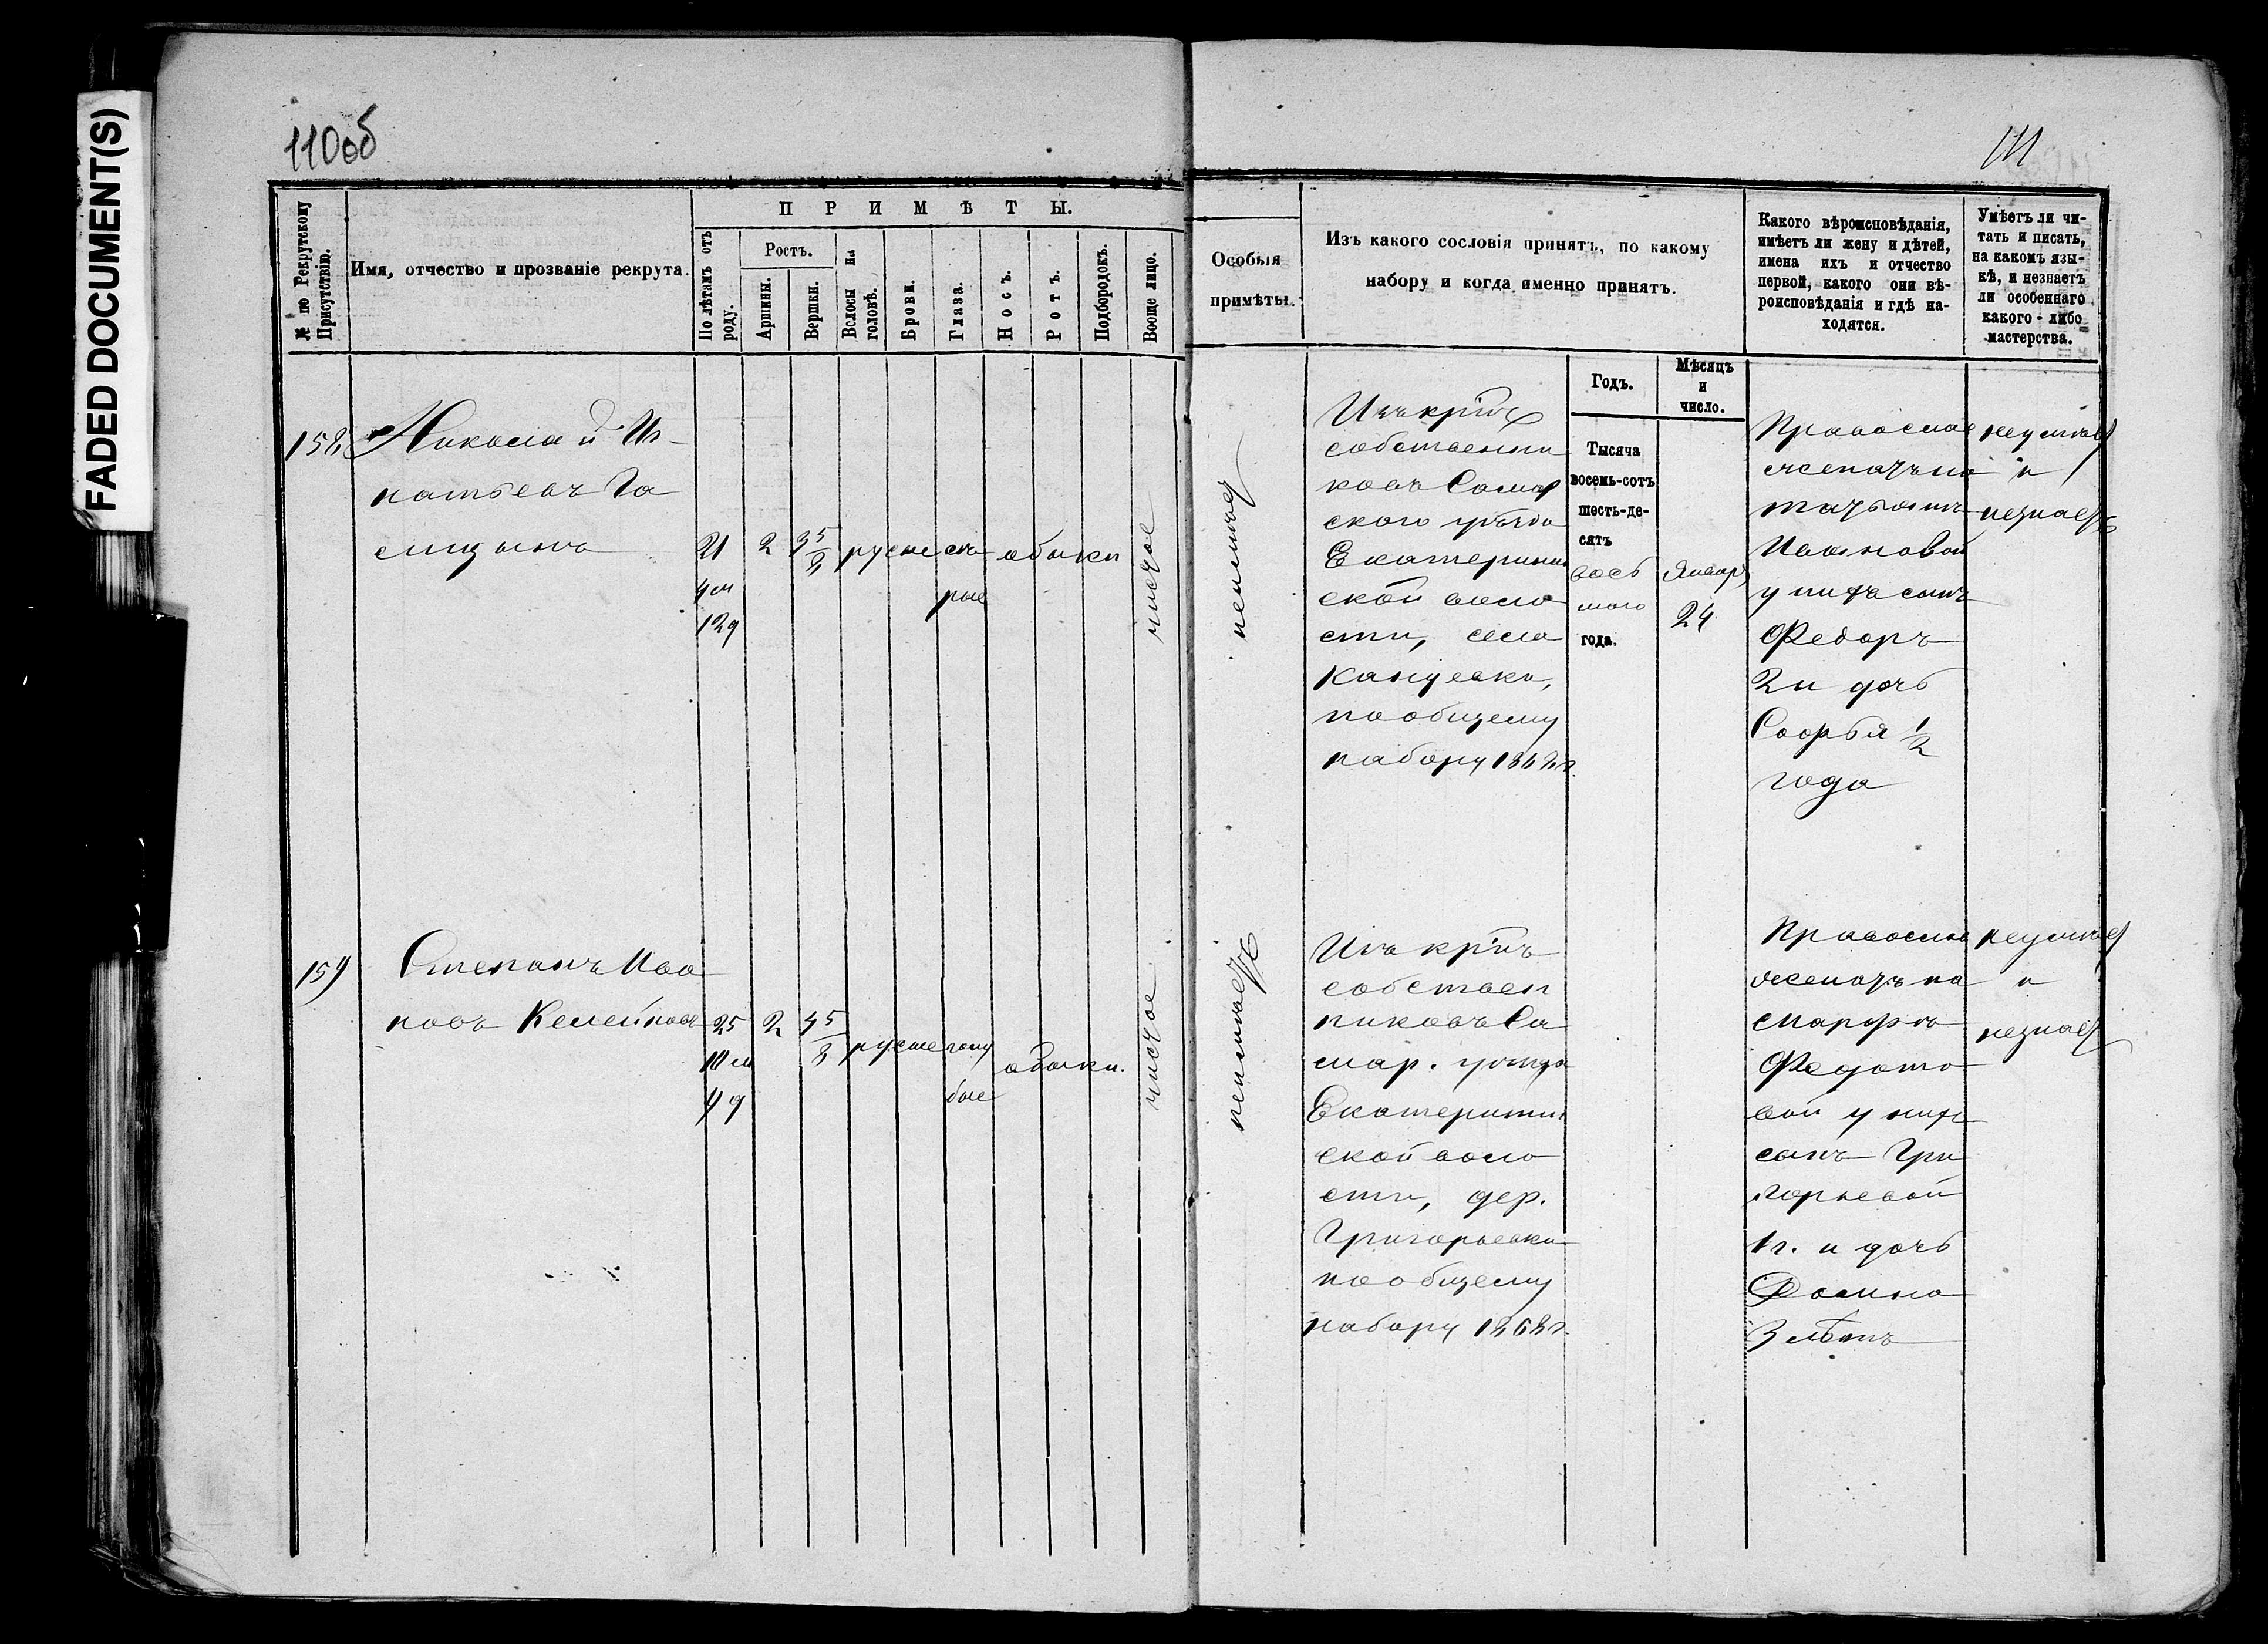 FADED DOCUMENT(S)
110об
111
№ по Рекрутскому Присутствію.
Имя, отчество и прозваніе рекрута.
ПРИМѢТЫ.
По лѣтамъ отъ роду.
Ростъ.
Аршины.
Вершки.
Волосы на головѣ.
Брови.
Глаза.
Носъ.
Ротъ.
Подбородокъ.
Вооще лицо.
Особыя
примѣты.
Изъ какого сословія принятъ, по какому
набору и когда именно принятъ.
Какого вѣроисповѣданія,
имѣетъ ли жену и дѣтей,
имена ихъ и отчество
первой, какого они вѣ-
роисповѣданія и гдѣ на-
ходятся.
Умѣетъ ли чи-
тать и писать,
на какомъ язы-
кѣ, и незнаетъ
ли особеннаго
какого-либо
мастерства.
Годъ.
Мѣсяцъ
и
число.
158
Николай Иг-
натьевъ Га
лицынъ
21
4 м
12 д
2
3 5/8
русые
сѣ
рые
обыкн
чистое
неимѣет
Изъ крнъ
собственни
ковъ Самар
скаго уѣзда
Екатеринин
ской воло
сти, села
Кануевки,
по общему
набору 1868 г.
Тысяча
восемь-сотъ
шесть-де-
сятъ
вось
маго
года.
Январ
24
Православ
женатъ на
Татьянѣ
Ивановой
у нихъ сынъ
Федоръ
2 и дочь
Софья 1/2
года
неумѣет
и
незнаетъ
159
Степанъ Ива
новъ
25
10 м
4 д
2
4 5/8
русые
голу
бые
обыкн.
чистое
неимѣетъ
Изъ крнъ
собствен
никовъ Са
мар. уѣзда
Екатеринин
ской воло
сти, дер.
Григорьевки
по общему
набору 1868 г.
Православ
женатъ на
Марфѣ
Федото
вой у нихъ
сынъ Гри
горьевой
1 г. и дочь
Домна
3 лѣтъ
неумѣет
и
незнает